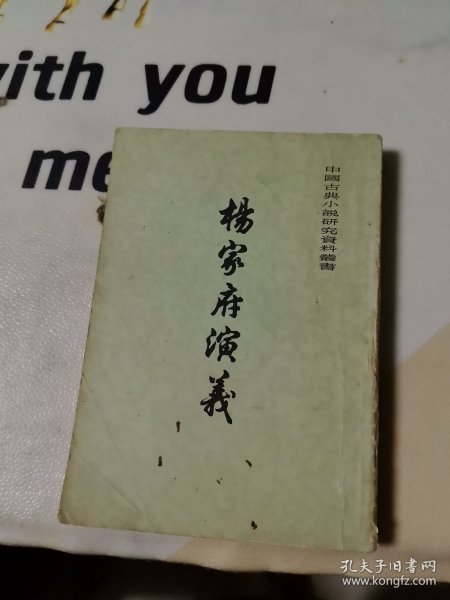 with you
me
中國古典小說研究資料叢書
楊家府演義
孔夫子旧书网
www.kongfz.com